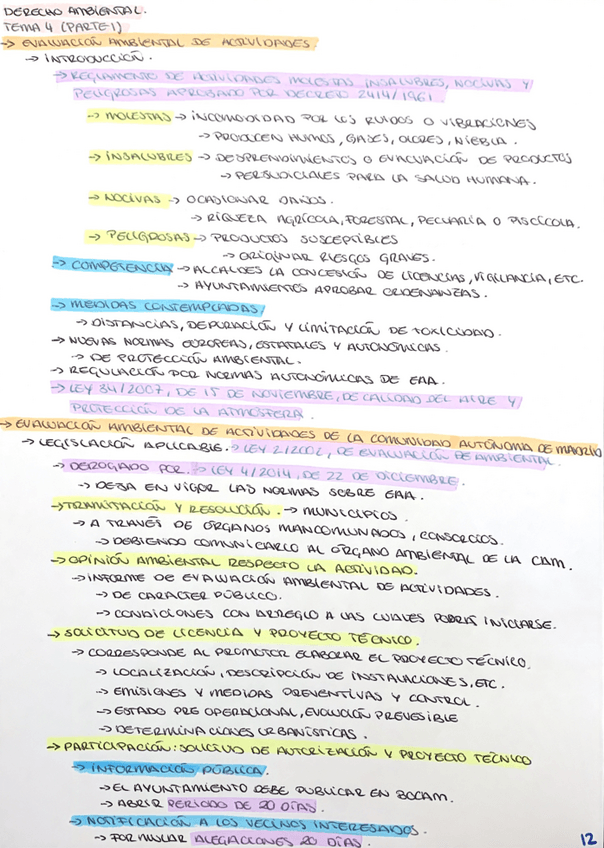 DERECHO AMBIENTAL.
TEMA 4 (PARTE 1)
→ EVALUACIÓN AMBIENTAL DE ACTIVIDADES.
→ INTRODUCCIÓN.
→ REGLAMENTO DE ACTIVIDADES MOLESTAS INSALUBRES, NOCIVAS Y
PELIGROSAS APROBADO POR DECRETO 2414/1961
→ MOLESTAS → INCOMODIDAD POR LOS RUIDOS O VIBRACIONES
→ PRODUCEN HUMOS, GASES, OLORES, NIEBLA.
→ INSALUBRES → DESPRENDIMIENTOS O EVACUACIÓN DE PRODUCTOS
→ PERJUDICIALES PARA LA SALUD HUMANA.
→ NOCIVAS → OCASIONAR DAÑOS.
→ RIQUEZA AGRÍCOLA, FORESTAL, PECUARIA O PISCÍCOLA.
→ PELIGROSAS → PRODUCTOS SUSCEPTIBLES
→ ORIGINAR RIESGOS GRAVES.
→ COMPETENCIA → ALCALDES LA CONCESIÓN DE LICENCIAS, VIGILANCIA, ETC.
→ AYUNTAMIENTOS APROBAR ORDENANZAS.
→ MEDIDAS CONTEMPLADAS:
→ DISTANCIAS, DEPURACIÓN Y LIMITACIÓN DE TOXICIDAD.
→ NUEVAS NORMAS EUROPEAS, ESTATALES Y AUTONÓMICAS.
→ DE PROTECCIÓN AMBIENTAL.
→ REGULACIÓN POR NORMAS AUTONÓMICAS DE EAA.
→ LEY 34/2007, DE 15 DE NOVIEMBRE, DE CALIDAD DEL AIRE Y
PROTECCIÓN DE LA ATMÓSFERA.
→ EVALUACIÓN AMBIENTAL DE ACTIVIDADES DE LA COMUNIDAD AUTÓNOMA DE MADRID
→ LEGISLACIÓN APLICABLE. → LEY 2/2002, DE EVALUACIÓN DE AMBIENTAL.
→ DEROGADO POR. → LEY 4/2014, DE 22 DE DICIEMBRE.
→ DEJA EN VIGOR LAS NORMAS SOBRE EAA.
→ TRAMITACIÓN Y RESOLUCIÓN. → MUNICIPIOS.
→ A TRAVÉS DE ÓRGANOS MANCOMUNADOS, CONSORCIOS.
→ DEBIENDO COMUNICARLO AL ÓRGANO AMBIENTAL DE LA CAM.
→ OPINIÓN AMBIENTAL RESPECTO LA ACTIVIDAD.
→ INFORME DE EVALUACIÓN AMBIENTAL DE ACTIVIDADES.
→ DE CARÁCTER PÚBLICO.
→ CONDICIONES CON ARREGLO A LAS CUALES PODRÁ INICIARSE.
→ SOLICITUD DE LICENCIA Y PROYECTO TÉCNICO.
→ CORRESPONDE AL PROMOTOR ELABORAR EL PROYECTO TÉCNICO.
→ LOCALIZACIÓN, DESCRIPCIÓN DE INSTALACIONES, ETC.
→ EMISIONES Y MEDIDAS PREVENTIVAS Y CONTROL.
→ ESTADO PRE OPERACIONAL, EVOLUCIÓN PREVISIBLE
→ DETERMINACIONES URBANÍSTICAS.
→ PARTICIPACIÓN: SOLICITUD DE AUTORIZACIÓN Y PROYECTO TÉCNICO
→ INFORMACIÓN PÚBLICA.
→ EL AYUNTAMIENTO DEBE PUBLICAR EN BOCAM.
→ ABRIR PERIODO DE 20 DÍAS.
→ NOTIFICACIÓN A LOS VECINOS INTERESADOS.
→ FORMULAR ALEGACIONES 20 DÍAS.
12